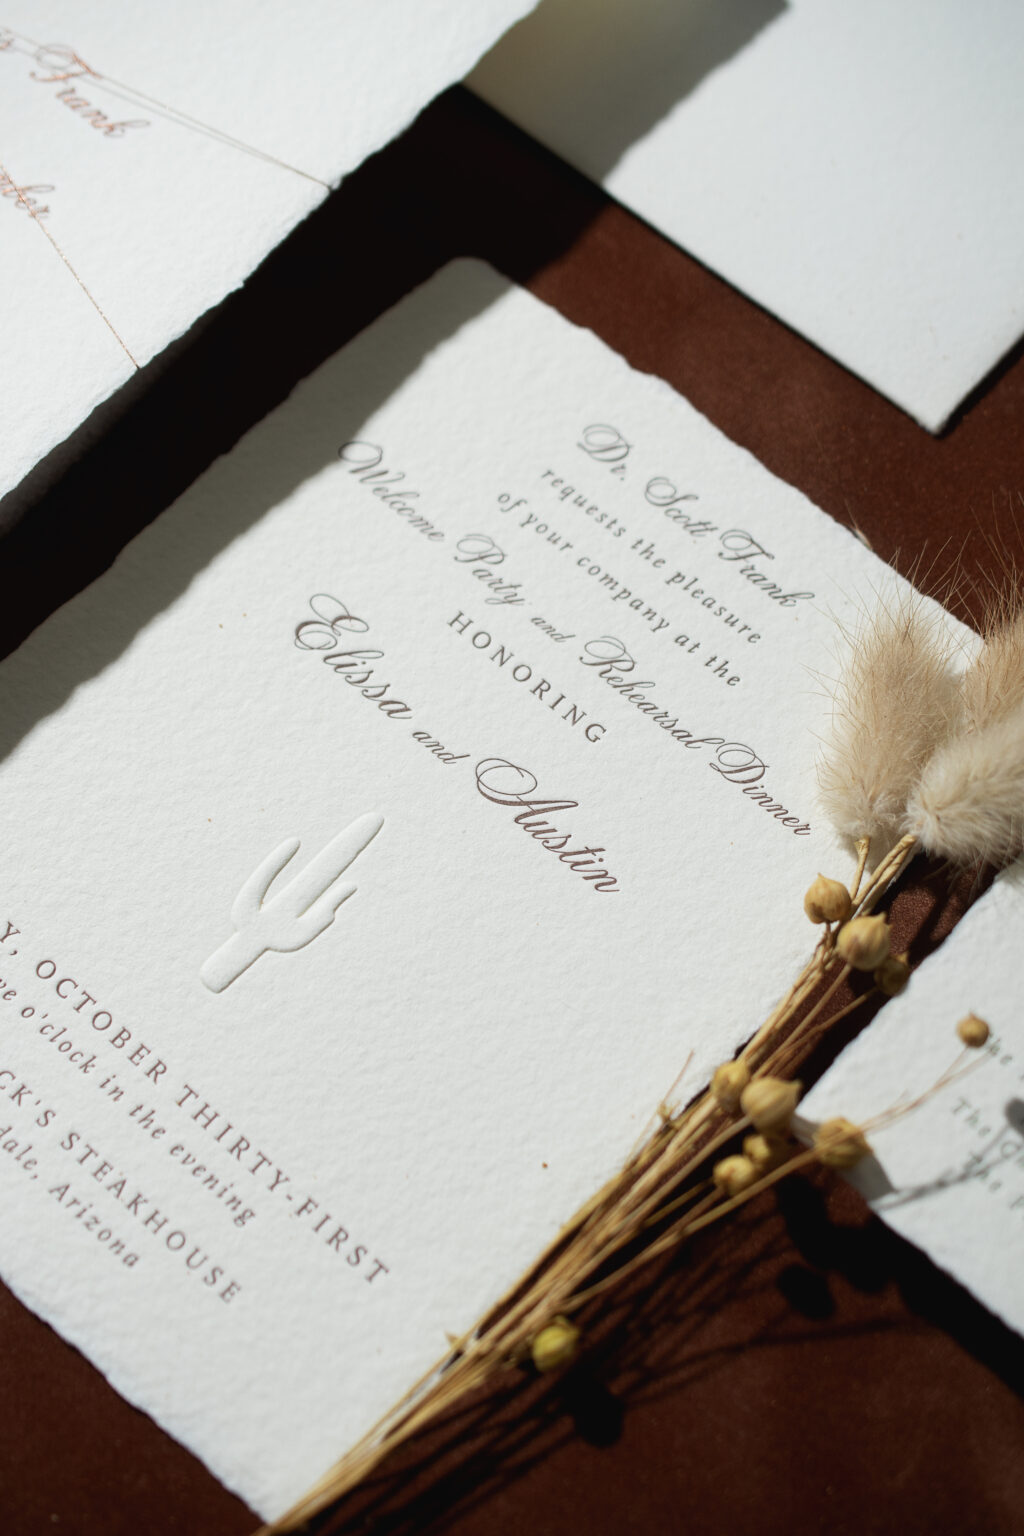 Frank
Dr. Scott Frank
requests the pleasure
of your company at the
Welcome Party and Rehearsal Dinner
HONORING
Elissa and Austin
Y, OCTOBER THIRTY-FIRST
o'clock in the evening
CK'S STEAKHOUSE
dale, Arizona
The
The